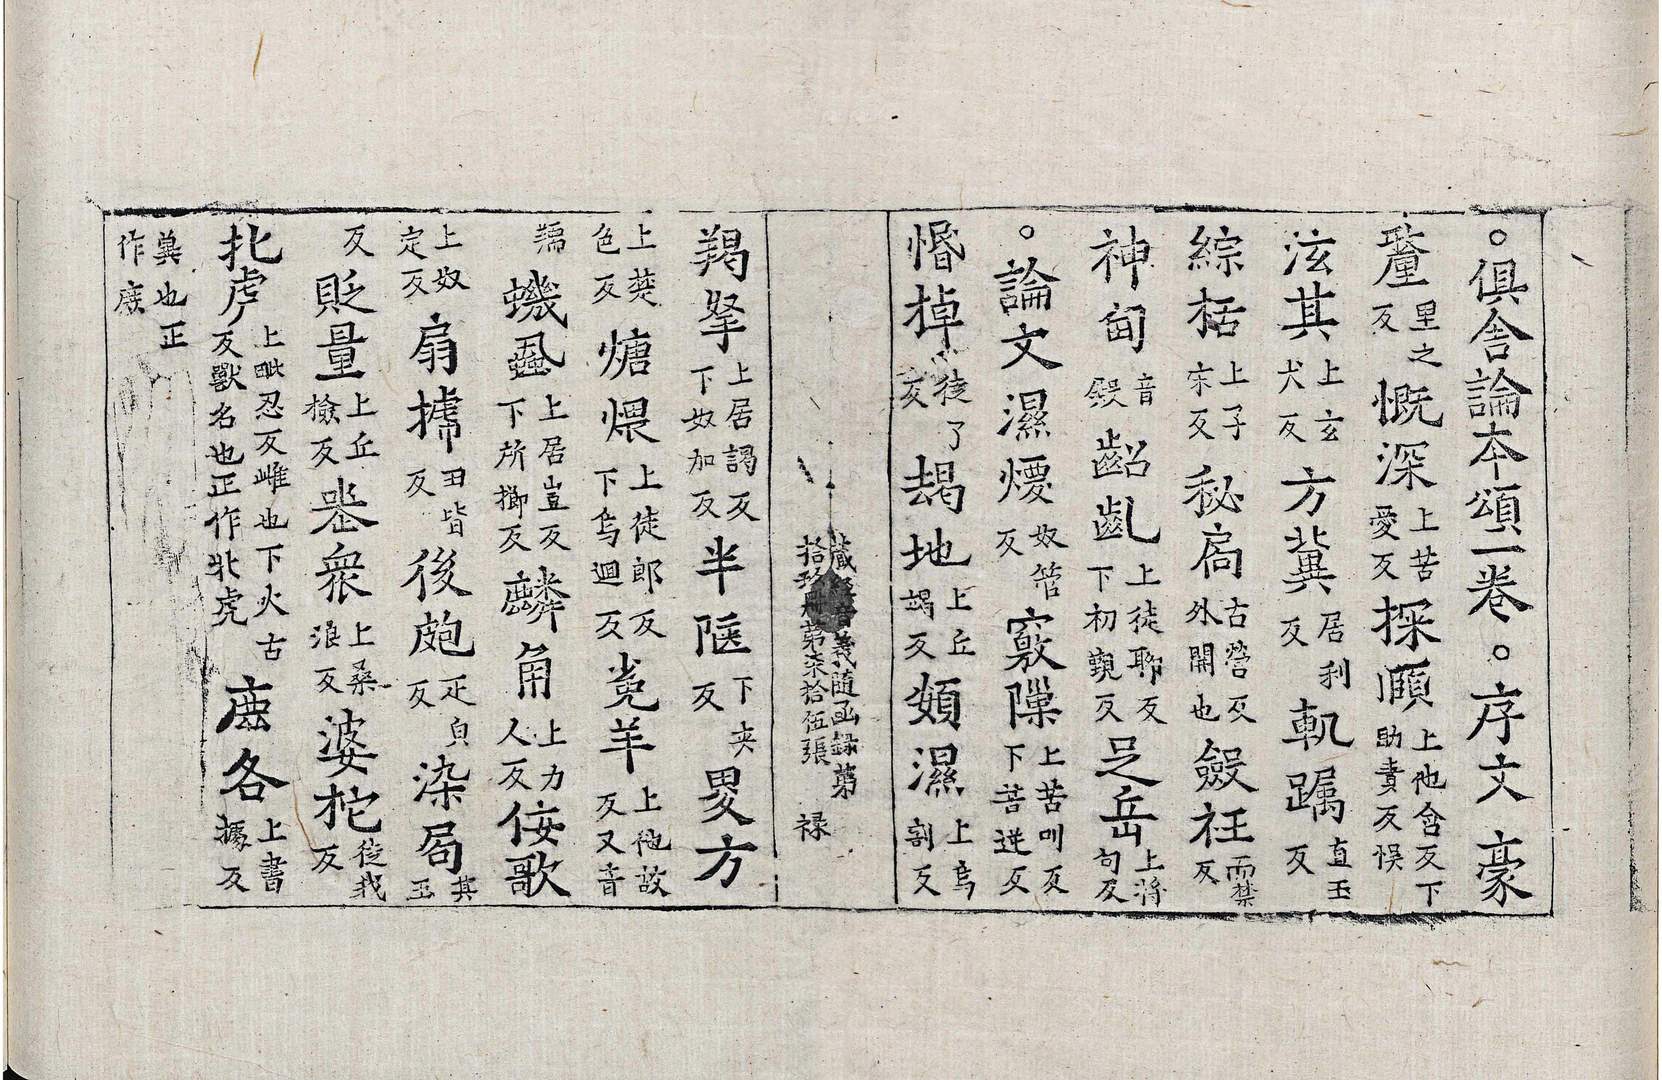 ○俱舍論本頌一卷○序文 豪
釐里之反 慨深上苦愛反 探賾上他含反下助責反悮
泫其上玄犬反 方冀居利反 軌躅直玉反
綜栝上子宋反 秘扃古營反外開也 僉衽而禁反
神甸音 齠齔上徒聊反下初覲反 足岳上將句反
○論文 濕煗奴管反 竅隟上苦叫反下苦逆反
惛掉徒了反 朅地上丘竭反 頞濕上烏割反
藏經音義随函録第
拾玖冊第柒拾伍張 禄
羯拏上居謁反下奴加反 半陜下夾反 畟方
上楚色反 煻煨上徒郎反下烏迴反 兔羊上他故反又音
羺 蟣蝨上居豈反下所擳反 麟角上力人反 侫歌
上奴定反 扇搋丑皆反 後皰疋皃反 染局其玉
反 貶量上丘檢反 喪衆上桑浪反 婆柁徒我反
牝虎上毗忍反雌也下火古反獸名也正作牝虎 䖏各上書據反
兾也正
作